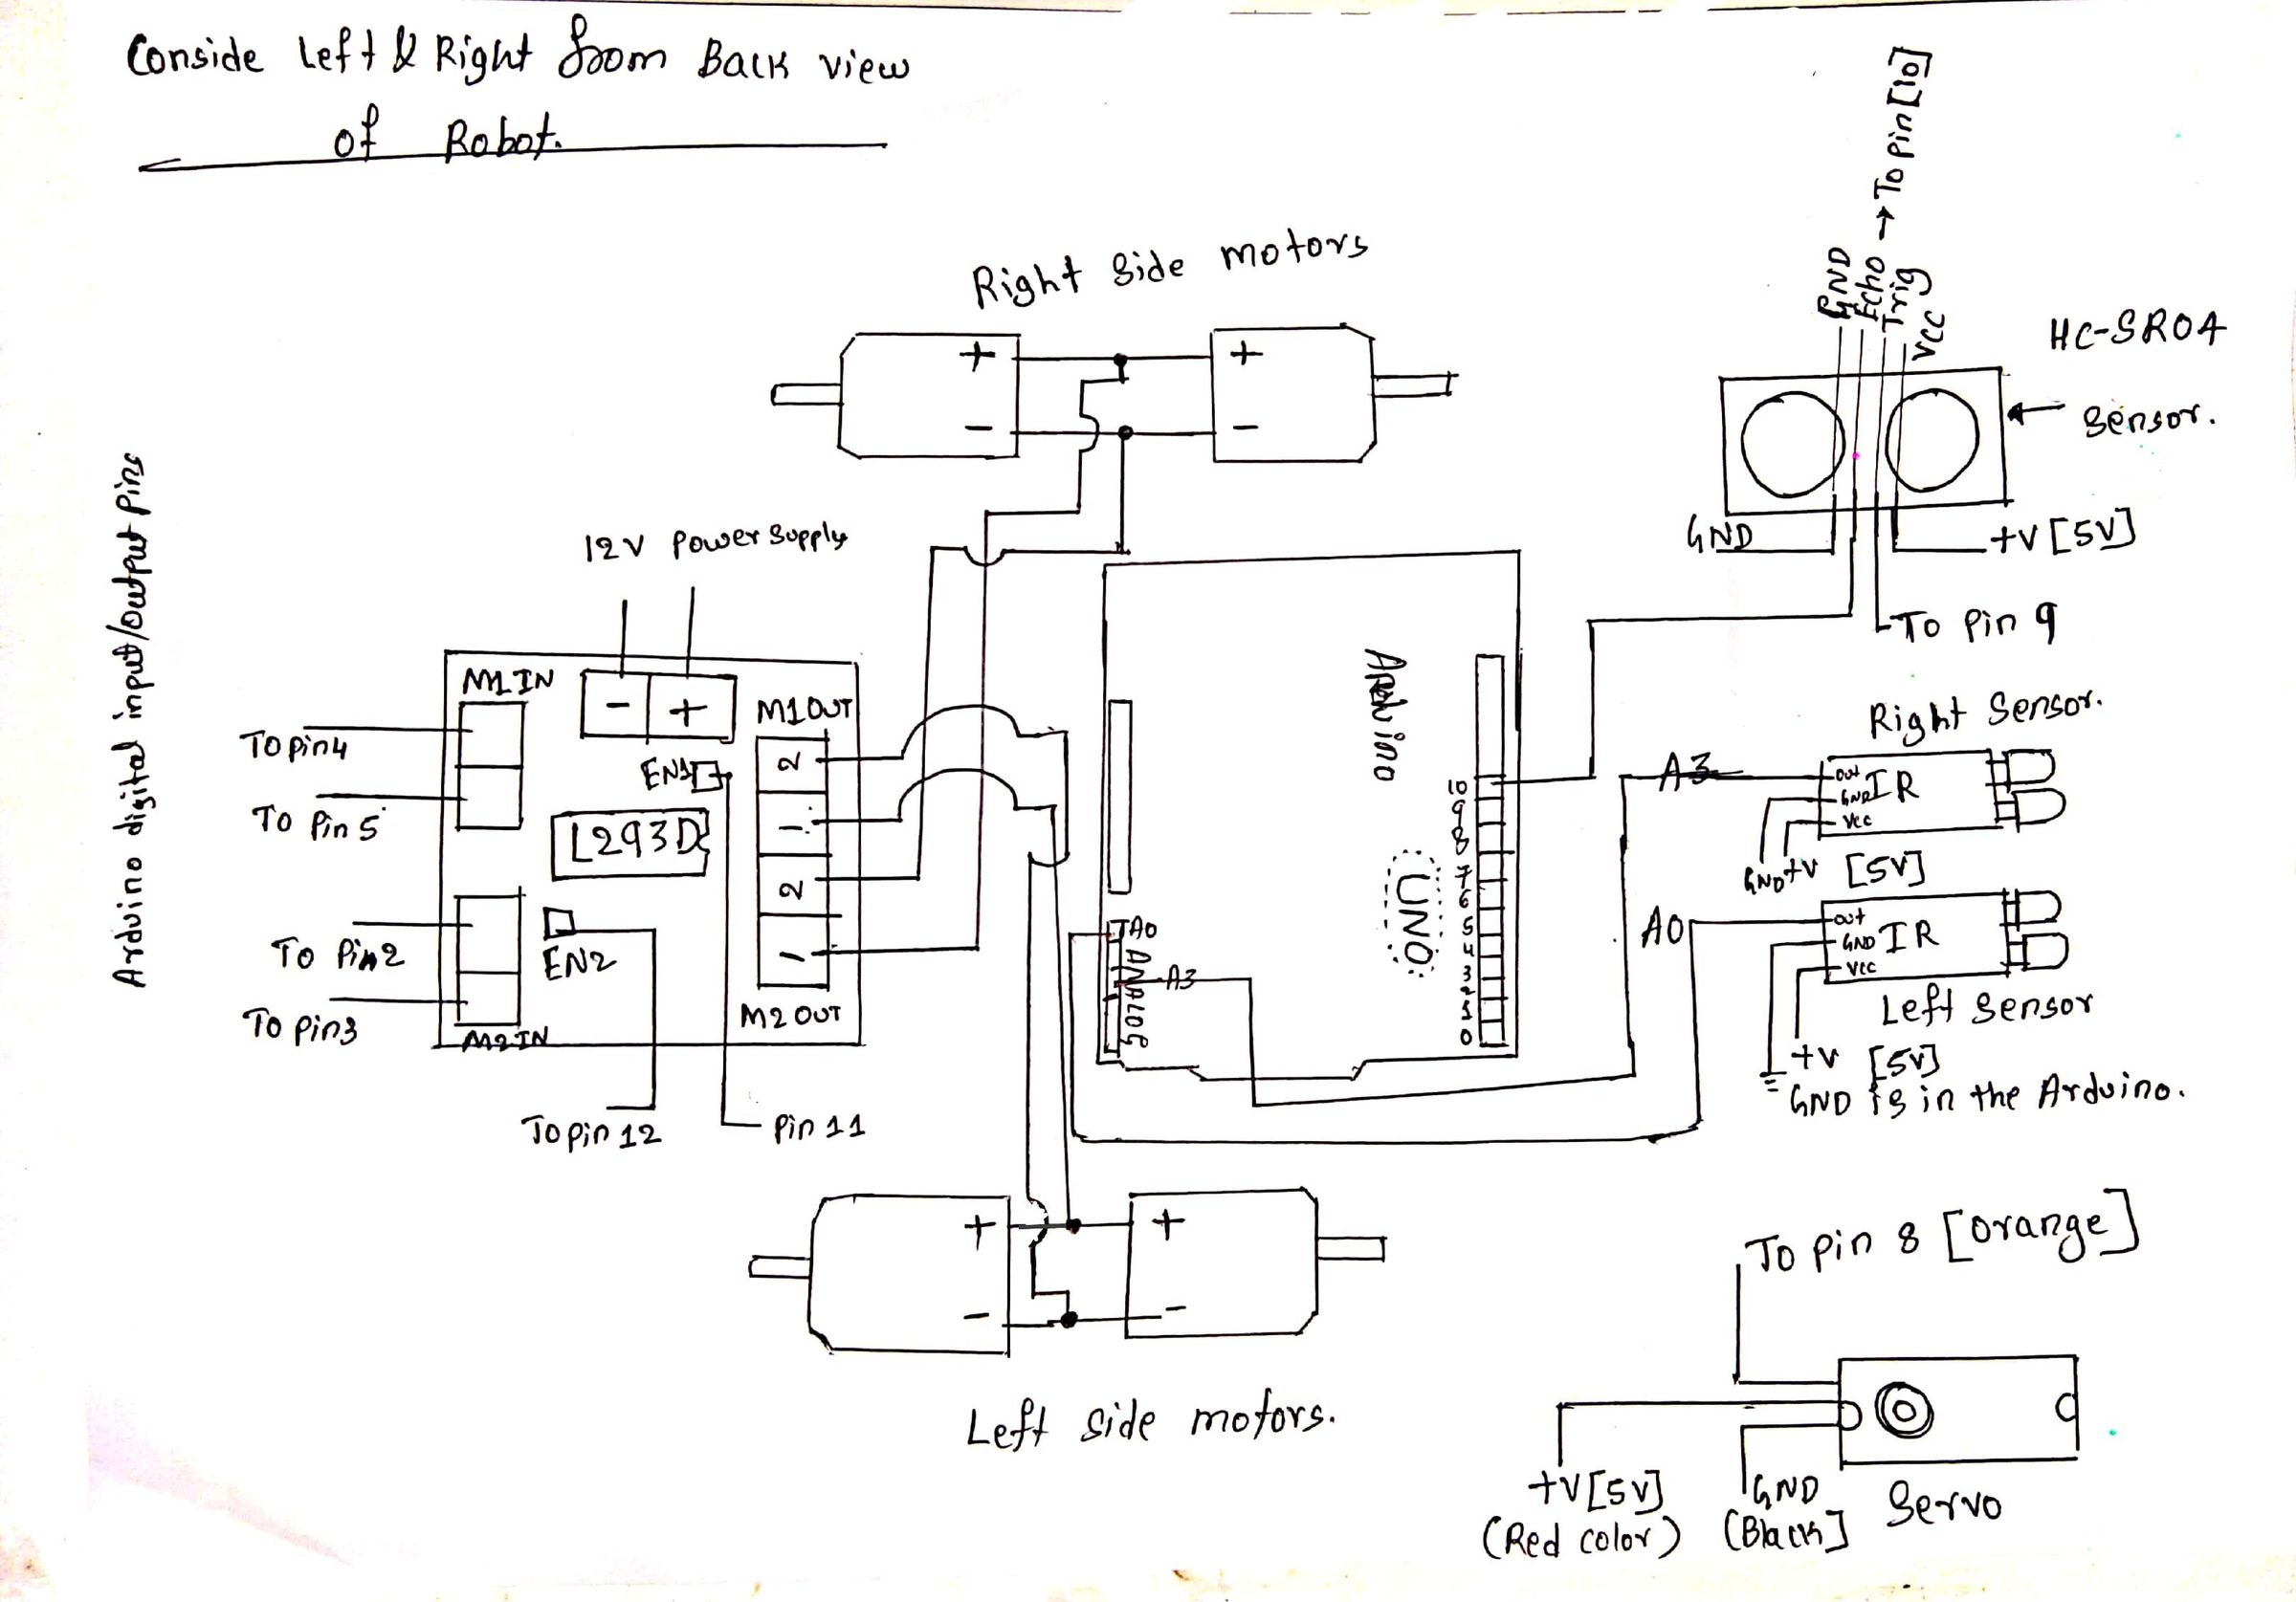 Conside Left & Right from Back view
of Robot.
Right Side motors
+
+
-
-
12V power supply
Arduino digital input/output pins
M1IN
-
+
M1OUT
To pin4
To Pin5
EN1
L293D
2
1
2
1
To Pin2
To pin3
EN2
M2IN
M2 OUT
To pin 12
Pin 11
Arduino
UNO
10
9
8
7
6
5
4
3
2
1
0
A0
ANALOG
A3
→ To pin [10]
GND
Echo
Trig
VCC
HC-SR04
Sensor.
GND
+V [5V]
To Pin 9
Right Sensor.
A3
out
GND
Vcc
IR
GND
+V [5V]
A0
out
GND
Vcc
IR
Left Sensor
+V [5V]
GND is in the Arduino.
+
+
-
-
Left Side motors.
To pin 8 [orange]
+V[5V]
(Red color)
GND
(Black]
Servo